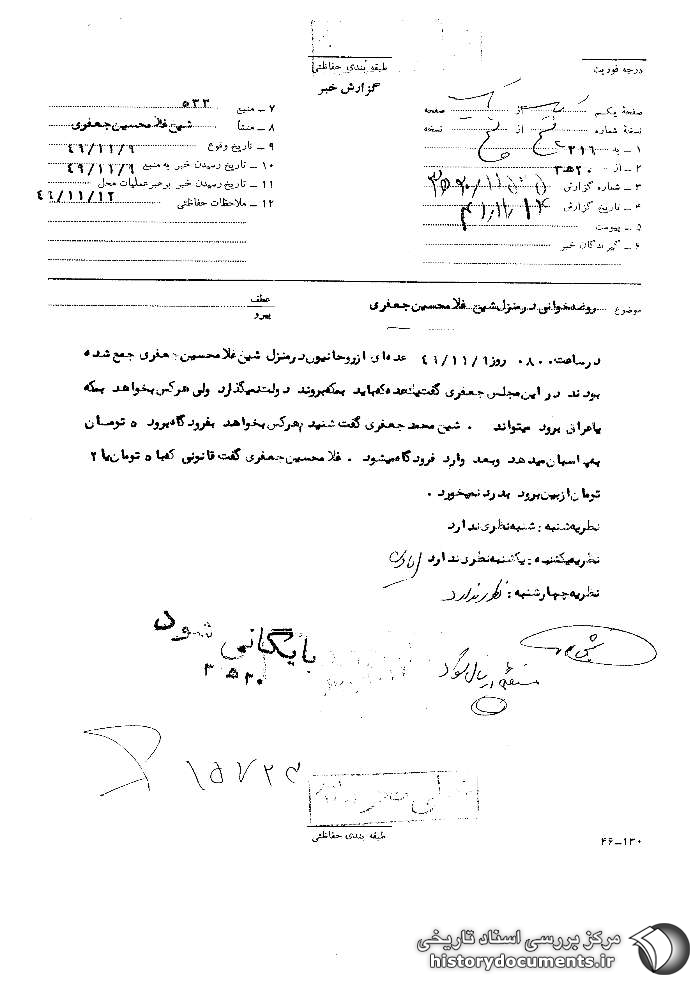 طبقه بندی حفاظتی
گزارش خبر
درجه فوریت
صفحهٔ یکم از صفحه
نسخهٔ شماره از نسخه
۱ ـ به ۳۱۶
۲ ـ از ۲۰ ﻫ ۳
۳ ـ شماره گزارش
۴ ـ تاریخ گزارش
۵ ـ پیوست
۶ ـ گیرندگان خبر
۷ ـ منبع ۵۳۳
۸ ـ منشأ شیخ غلامحسین جعفری
۹ ـ تاریخ وقوع ۴۱/۱۱/۹
۱۰ ـ تاریخ رسیدن خبر به منبع ۴۹/۱۱/۹
۱۱ ـ تاریخ رسیدن خبر برهبر عملیات محل
۱۲ ـ ملاحظات حفاظتی ۴۱/۱۱/۱۲
موضوع روضه خوانی در منزل شیخ غلامحسین جعفری
عطف
پیرو
در ساعت ۰۸۰۰ روز ۴۱/۱۱/۹ عده ای از روحانیون در منزل شیخ غلامحسین جعفری جمع شده
بودند در این مجلس جعفری گفت یکعده که باید بمکه بروند دولت نمیگذارد ولی هر کس بخواهد بمکه
یا عراق برود میتواند . شیخ محمد جعفری گفت شنیدم هرکس بخواهد بفرودگاه برود ۵ تومان
به پاسبان میدهد و بعد وارد فرودگاه میشود . غلامحسین جعفری گفت قانونی که با ۵ تومان یا ۲
تومان از بین برود بدرد نمیخورد .
نظریه شنبه : شنبه نظری ندارد
نظریه یکشنبه : یکشنبه نظری ندارد
نظریه چهارشنبه : نظری ندارد
بایگانی شود
۳ ﻫ ۳۰
۱۵۷۲۳
طبقه بندی حفاظتی
۴۶ـ۱۳۰
مرکز بررسی اسناد تاریخی
historydocuments.ir